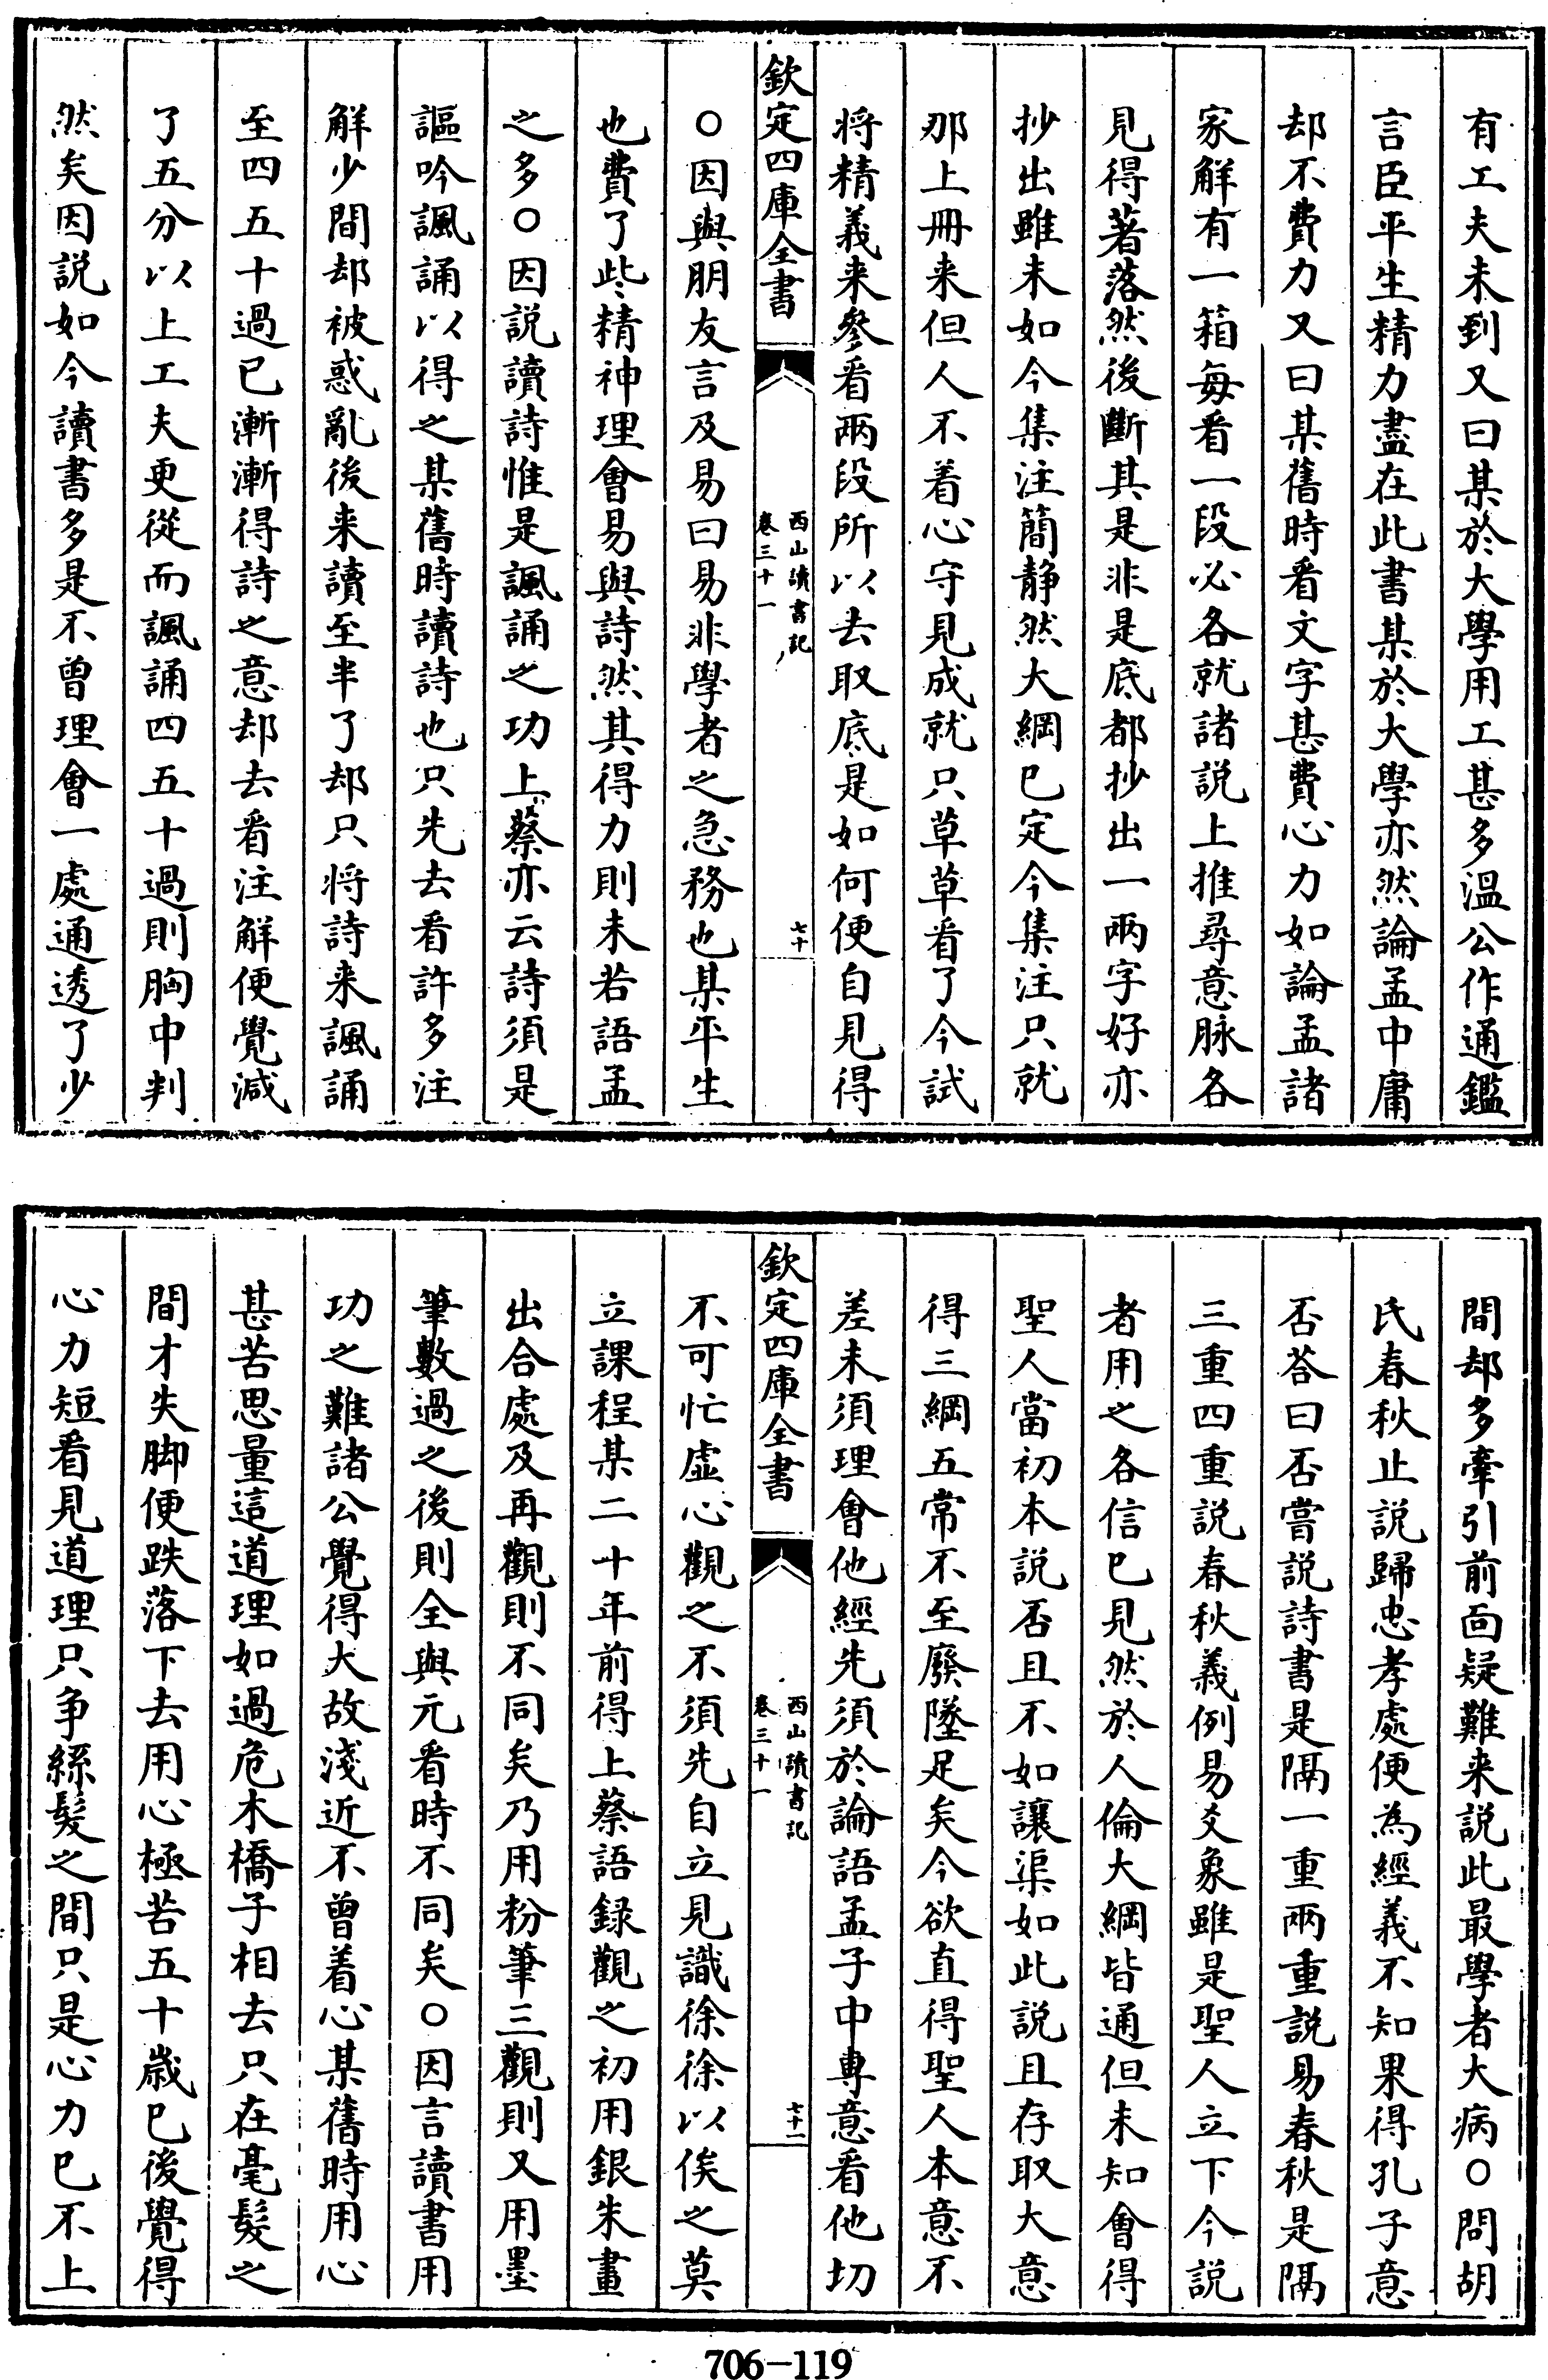 有工夫未到又曰某於大學用工甚多溫公作通鑑
言臣平生精力盡在此書某於大學亦然論孟中庸
却不費力又曰某舊時看文字甚費心力如論孟諸
家解有一箱每看一段必各就諸說上推尋意脉各
見得著落然後斷其是非是底都抄出一兩字好亦
抄出雖未如今集注簡静然大綱已定今集注只就
那上冊来但人不着心守見成就只草草看了今試
将精義来參看兩段所以去取底是如何便自見得
欽定四庫全書
西山讀書記
卷三十一
七十
○因與朋友言及易曰易非學者之急務也某平生
也費了些精神理會易與詩然其得力則未若語孟
之多○因說讀詩惟是諷誦之功上蔡亦云詩須是
謳吟諷誦以得之某舊時讀詩也只先去看許多注
解少間却被惑亂後来讀至半了却只将詩来諷誦
至四五十過已漸漸得詩之意却去看注解便覺減
了五分以上工夫更從而諷誦四五十過則胸中判
然矣因說如今讀書多是不曾理會一處通透了少
間却多牽引前面疑難来說此最學者大病○問胡
氏春秋止說歸忠孝處便為經義不知果得孔子意
否荅曰否嘗說詩書是隔一重兩重說易春秋是隔
三重四重說春秋義例易爻象雖是聖人立下今說
者用之各信已見然於人倫大綱皆通但未知會得
聖人當初本說否且不如讓渠如此說且存取大意
得三綱五常不至廢墜足矣今欲直得聖人本意不
差未須理會他經先須於論語孟子中專意看他切
欽定四庫全書
西山讀書記
卷三十一
七十一
不可忙虛心觀之不須先自立見識徐徐以俟之莫
立課程某二十年前得上蔡語録觀之初用銀朱畫
出合處及再觀則不同矣乃用粉筆三觀則又用墨
筆數過之後則全與元看時不同矣○因言讀書用
功之難諸公覺得大故淺近不曾着心某舊時用心
甚苦思量這道理如過危木橋子相去只在毫髮之
間才失脚便跌落下去用心極苦五十歲已後覺得
心力短看見道理只争絲髮之間只是心力已不上
706-119